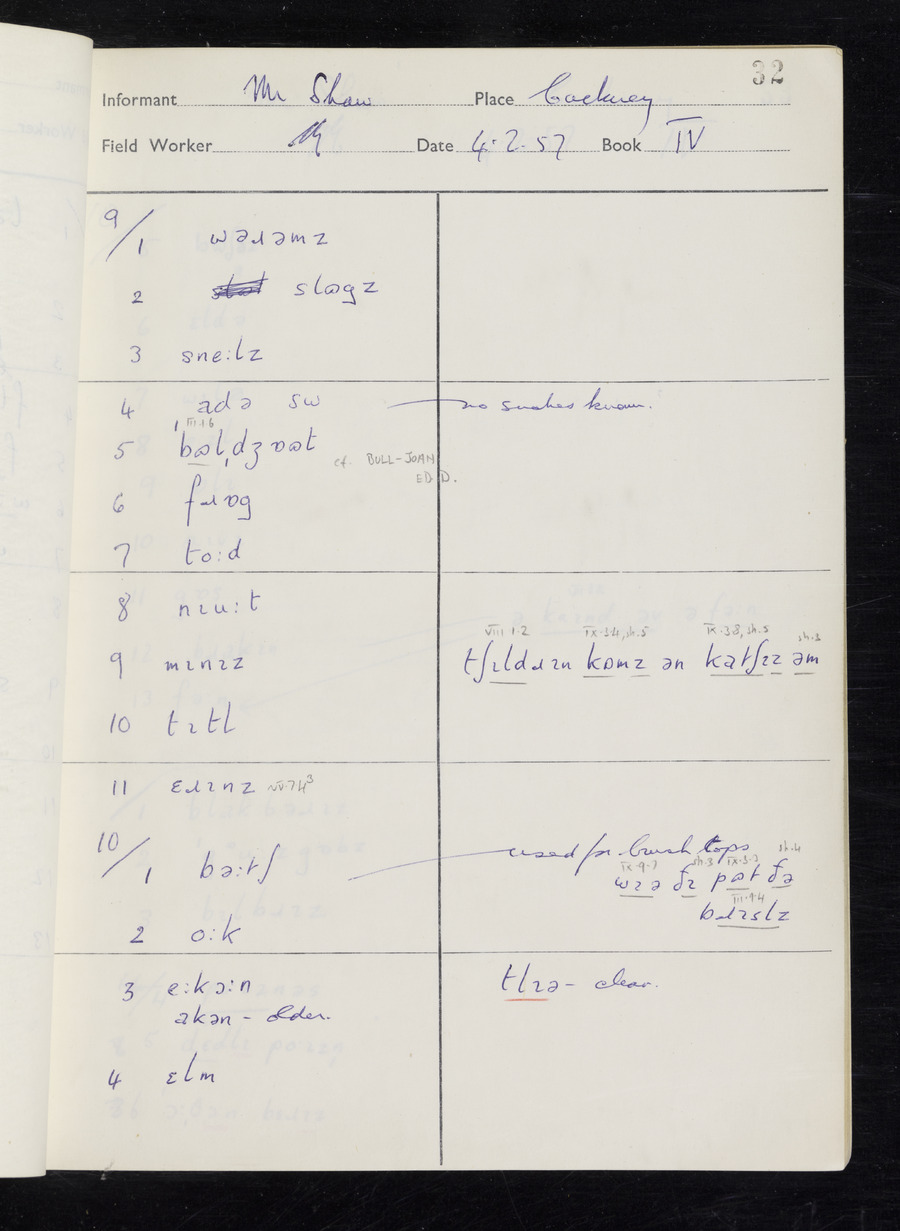 32
Informant Mr Shaw Place Cockney
Field Worker Date 4.2.57 Book IV
9/1 wəɹəmz
2 slɷgz
3 sneːlz
4 adə sw no snakes known.
III.1.6
5 bɷlˌdʒɒɷt
cf. BULL-JOAN
EDD.
6 fɹɒg
7 toːd
8 nɪuːt
VIII.1.2 IX.3.4, sh.5 IX.3.8, sh.5 sh.3
9 mɪnɪz tʃɪldɹɪn kɒmz ən katʃɪz əm
10 tɪtl
11 ɛɹɪnz VI.7.4³
10/1 bəːtʃ used for brush tops
IX.9.7 sh.3 IX.3.3 sh.4
wɪə ðɪ pɷt ðə
III.9.4
bɹɪslz
2 oːk
3 eːkɔːn tlɪə – clear.
akən – older.
4 ɛlm